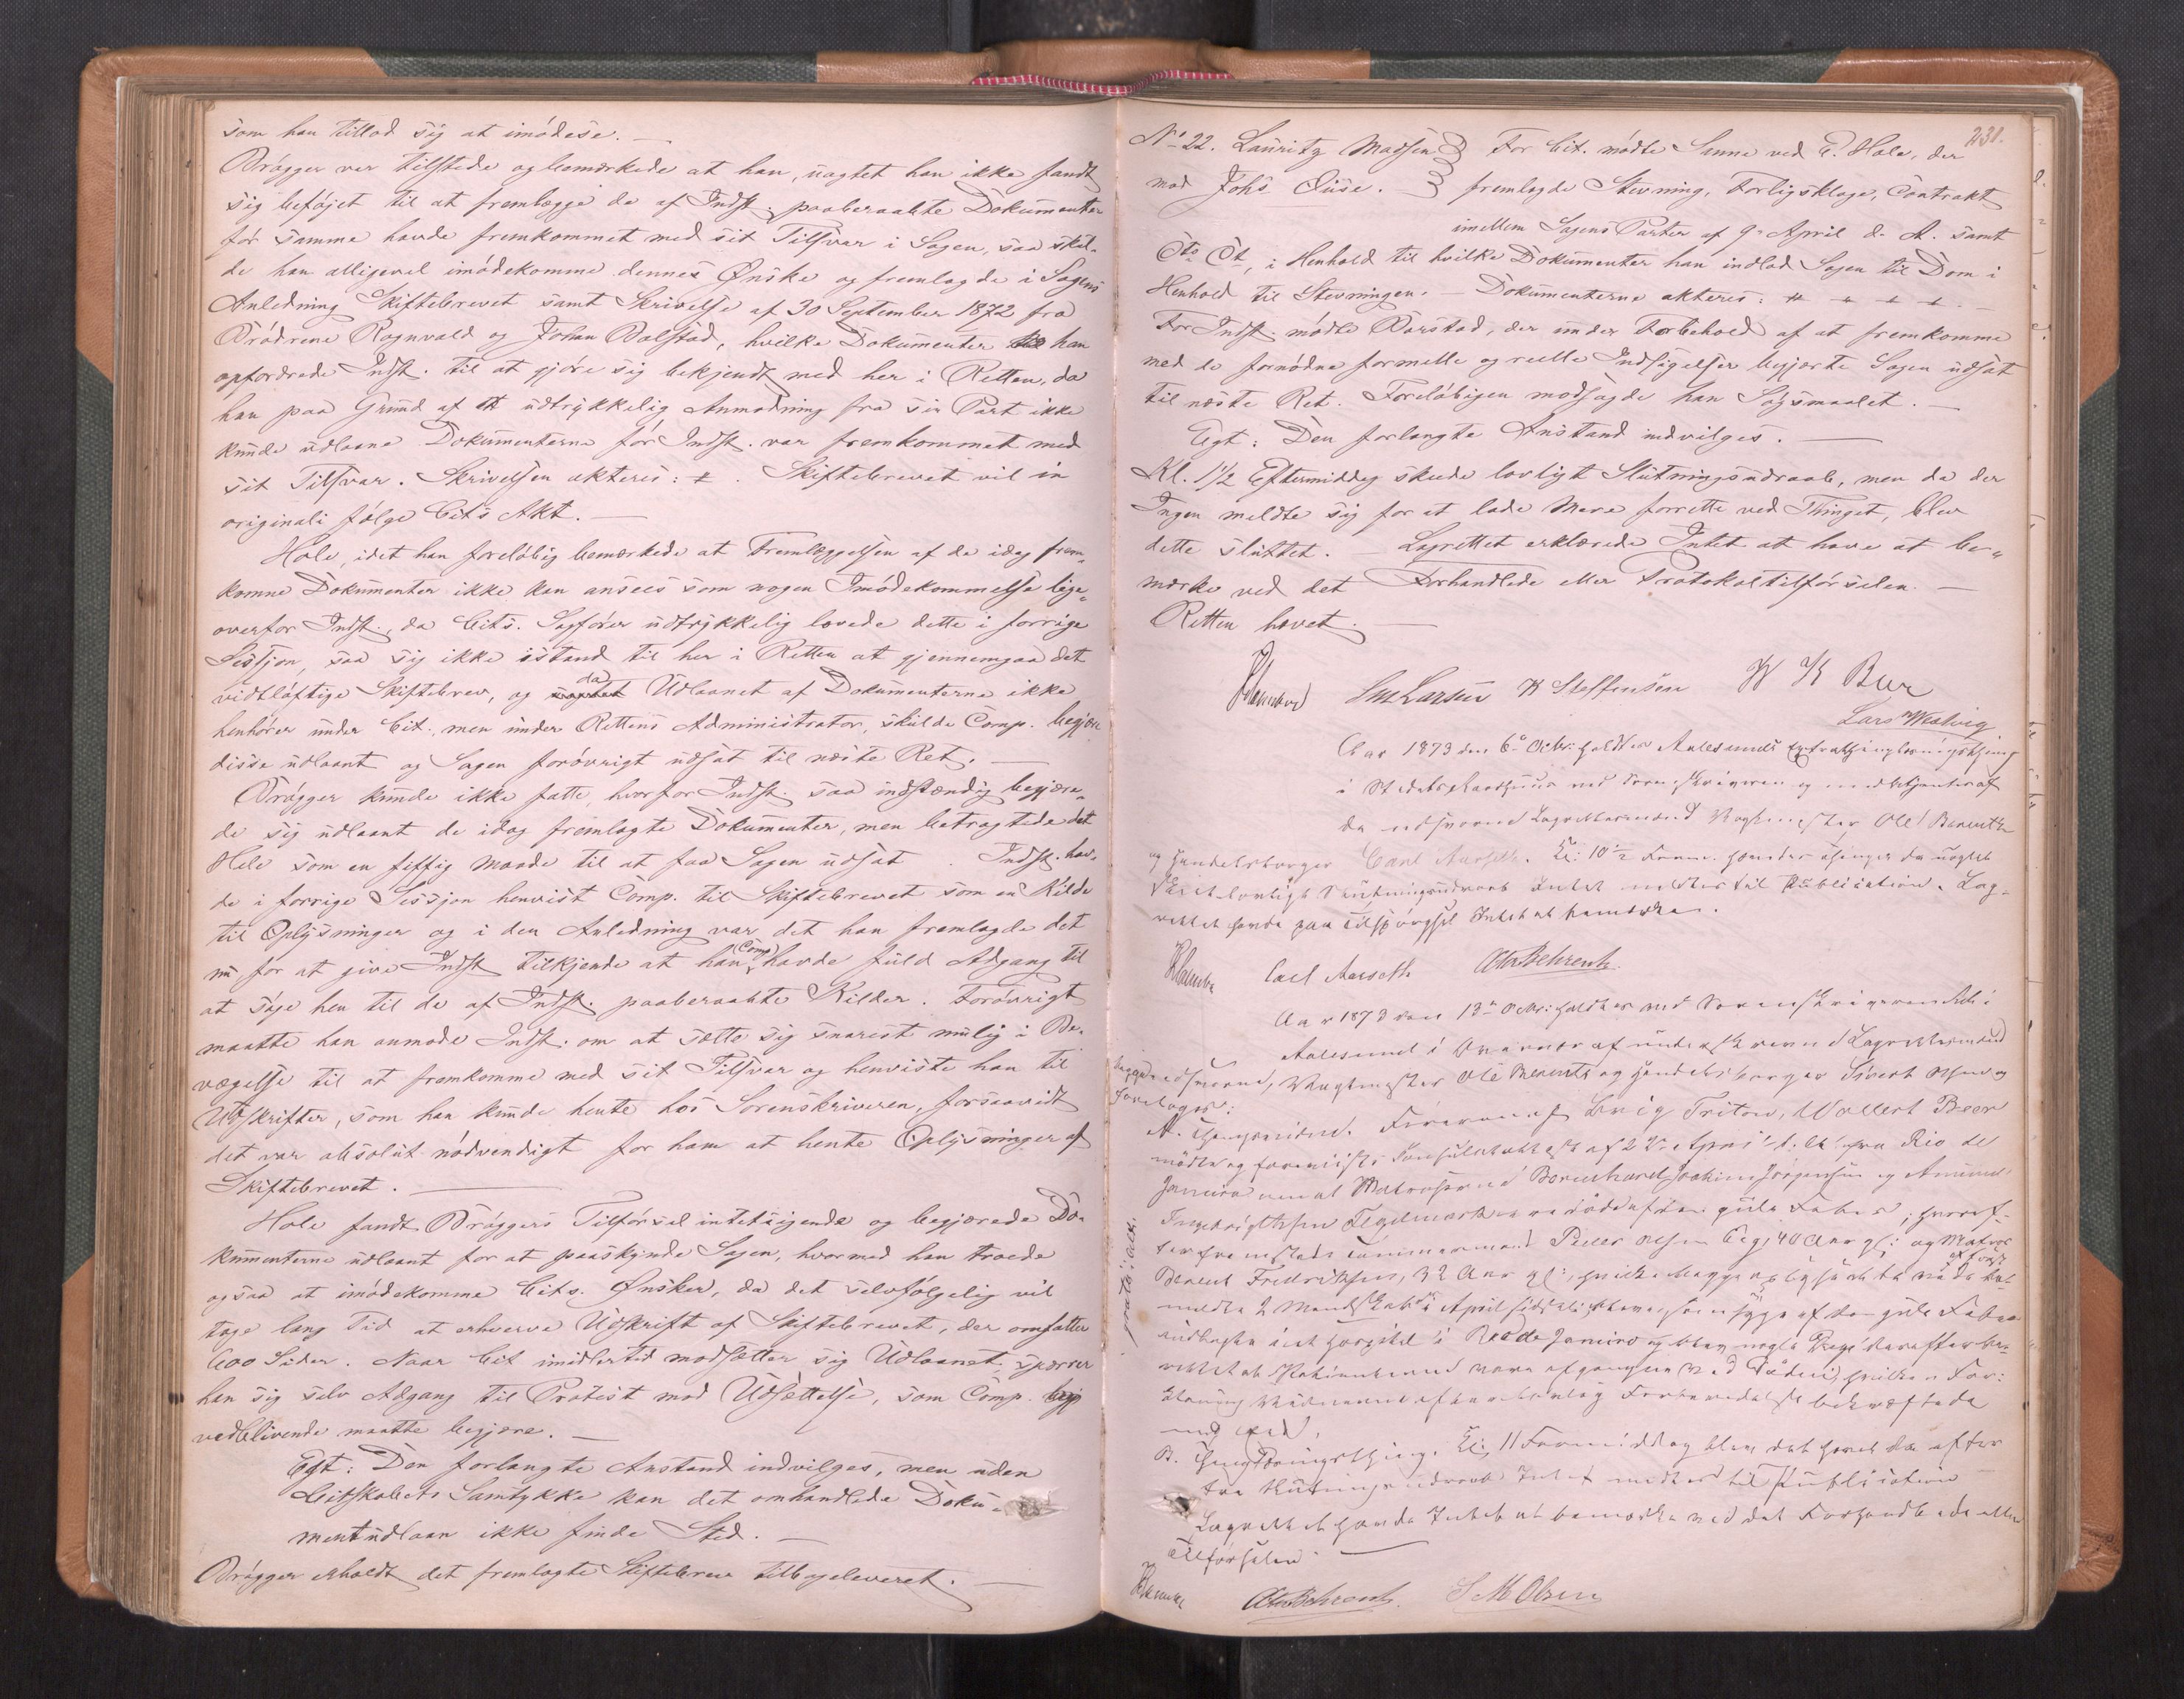 som han tillod sig at imödese. —
Brögger var tilstede og bemærkede at han, uagtet han ikke fandt
sig beföjet til at fremlægge de af Indst. paaberaabte Dokumenter
för samme havde fremkommet med sit Tilsvar i Sagen, saa skul-
de han alligevel imödekomme dennes Ønske og fremlagde i Sagens
Anledning Skiftebrevet samt Skrivelse af 30 September 1872 fra
Brödrene Rognvald og Johan Dalstad, hvilke Dokumenter han
opfordrede Indst. til at gjöre sig bekjendt med her i Retten, da
han paa Grund af udtrykkelig Anmodning fra sin Part ikke
kunde udlaane Dokumenterne för Indst. var fremkommet med
sit Tilsvar. Skrivelsen akteres: ⁜. Skiftebrevet vil in
originali fölge Cits Akt. —
Hole, idet han foreløbig bemærkede at Fremlæggelsen af de idag frem-
komne Dokumenter ikke kan ansees som nogen Imödekommelse lige-
overfor Indst., da Cits. Sagförer udtrykkelig lovede dette i forrige
Session, saa sig ikke istand til her i Retten at gjennemgaa det
vidtlöftige Skiftebrev, og da Udlaanet af Dokumenterne ikke
henhörer under Cit., men under Rettens Administrator, skulde Comp. begjære
disse udlaant og Sagen forövrigt udsat til næste Ret. —
Brögger kunde ikke fatte, hvorfor Indst. saa indstændig begjære-
de sig udlaant de idag fremlagte Dokumenter, men betragtede det
Hele som en fiffig Maade til at faa Sagen udsat Indst. hav-
de i forrige Session henvist Comp. til Skiftebrevet som en Kilde
til Oplysninger og i den Anledning var det han fremlagde det
nu, for at give Indst tilkjende at han (Comp) havde fuld Adgang til
at söge hen til de af Indst. paaberaabte Kilder. Forövrigt
maatte han anmode Indst. om at sætte sig snarest mulig i Be-
vægelse til at fremkomme med sit Tilsvar og henviste han til
Udskrifter, som han kunde hente hos Sorenskriveren, forsaavidt
det var absolut nödvendigt for ham at hente Oplysninger af
Skiftebrevet. —
Hole fandt Bröggers Tilförsel intetsigende og begjærede Do-
kumenterne udlaant for at paaskynde Sagen, hvormed han troede
ogsaa at imödekomme Cits. Ønsker, da det selvfölgelig vil
tage lang Tid at erhverve Udskrift af Skiftebrevet, der omfatter
600 Sider. Naar Cit imidlertid modsætter sig Udlaanet, spærrer
han sig selv Adgang til Protest mod Udsættelse, som Comp.
vedblivende maatte begjære. —
Egt: Den forlangte Anstand indvilges, men uden
Citskabets Samtykke kan det omhandlede Doku-
mentudlaan ikke finde Sted. —
Brögger erholdt det fremlagte Skiftebrev tilbageleveret. —
231.
No 22. Lauritz Madsen } For Cit. mödte Sanne ved E. Hole, der
mod Johs Duse. — } fremlagde Stevning, Forligsklage, Contrakt
imellem Sagens Parter af 9de April d. A. samt
i Henhold til hvilke Dokumenter han indlod Sagen til Dom i
Henhold til Stevningen. — Dokumenterne akteres: ⁜ ⁜ ⁜ ⁜.
For Indst. mödte Barstad, der under Forbehold af at fremkomme
med de fornödne formelle og reelle Indsigelser begjærte Sagen udsat
til næste Ret. Forelöbigen modsagde han Sögsmaalet. —
Egt: Den forlangte Anstand indvilges. —
Kl. 1½ Eftermiddag skede lovligt Slutningsudraab, men da der
Ingen meldte sig for at lade Mere forrette ved Thinget, blev
dette sluttet. — Lagrettet erklærede Intet at have at be-
mærke ved det Forhandlede eller Protokoltilförselen. —
Retten hævet. —
K Steffensen
Lars Westvig
Aar 1873 den 6te Octbr: holdtes Aalesunds Extrathinglæsningsthing
i Stedets Raadhuus ved Sorenskriveren og medbetjentes af
de edsvorne Lagrettesmænd Vagtmester Ole Berentz
og Handelsborger Carl Aarseth. Kl: 10½ Form. hævedes Thinget da uagtet
skeet lovligt Slutningsudraab Intet meldtes til Publication. Lag-
rettet havde paa Tilspörgsel Intet at bemærke.
Carl Aarseth OlaBehrentz.
Aar 1873 den 13de Octbr: holdtes ved Sorenskriverembedet i
Aalesund i Overvær af underskrevne Lagrettesmænd
begge edsvorne, Vagtmester Ole Berentz og Handelsborger Sivert Olsen
foretoges:
A. Thingsvidne. Föreren af Brig Triton, Wollert Beer
mödte og foreviiste Consulatattest af 22de April d. A. fra Rio de
Janeiro om at Matroserne Bernhard Joakim Jörgensen og Amund
Ingebrigtsen Tegelmark var döde af den gule Feber, hvoref-
ter fremstod Tömmermand Peder Olsen Eeg, 40 Aar gl: og Matros
Berent Fredriksen, 32 Aar gl:, hvilke begge
meldte 2 Mandskab i April sidstleden som syge af den gule Feber
indlagte i et Hospital i Rio de Janeiro og blev nogle Dage derefter be-
rettet at Patienterne vare afgangne ved Döden, hvilken For-
klaring Vidnerne efter lovlig Forberedelse bekræftede
med Eed.
gratis: attr.
B. Thinglæsningsthing. Kl: 11 Formiddag blev det hævet da efter
tre Slutningsudraab Intet meldtes til Publication
Lagrettet havde Intet at bemærke ved det Forhandlede eller
Tilförselen. —
OlaBehrentz. S M Olsen